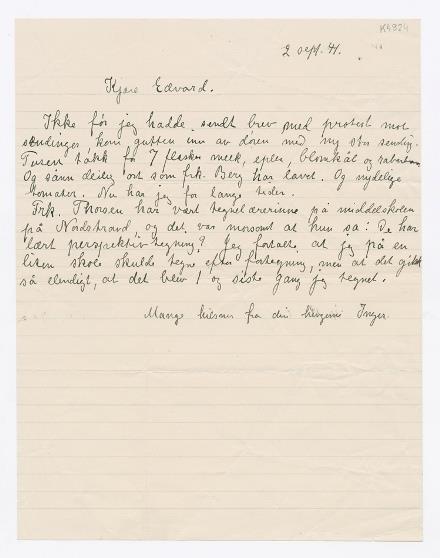 K4824
2 sept. 41.
Kjære Edvard.
Ikke før jeg hadde sendt brev med protest mot
sendinger kom gutten inn av døren med ny stor sending.
Tusen takk for 7 flasker melk, epler, blomkål og rabarbra
Og sånn deilig ost som frk. Berg har lavet. Og nydelige
tomater. Nu har jeg for lange tider.
Frk. Thorsen har vært tegnelærerinne på middelskolen
på Nordstrand, og det var morsomt at hun sa: De har
lært perspektivtegning? Jeg fortalte at jeg på en
liten skole skulde tegne efter fortegning, men at det gikk
så elendigt, at det blev 1 og siste gang jeg tegnet.
Mange hilsner fra din hengivne Inger